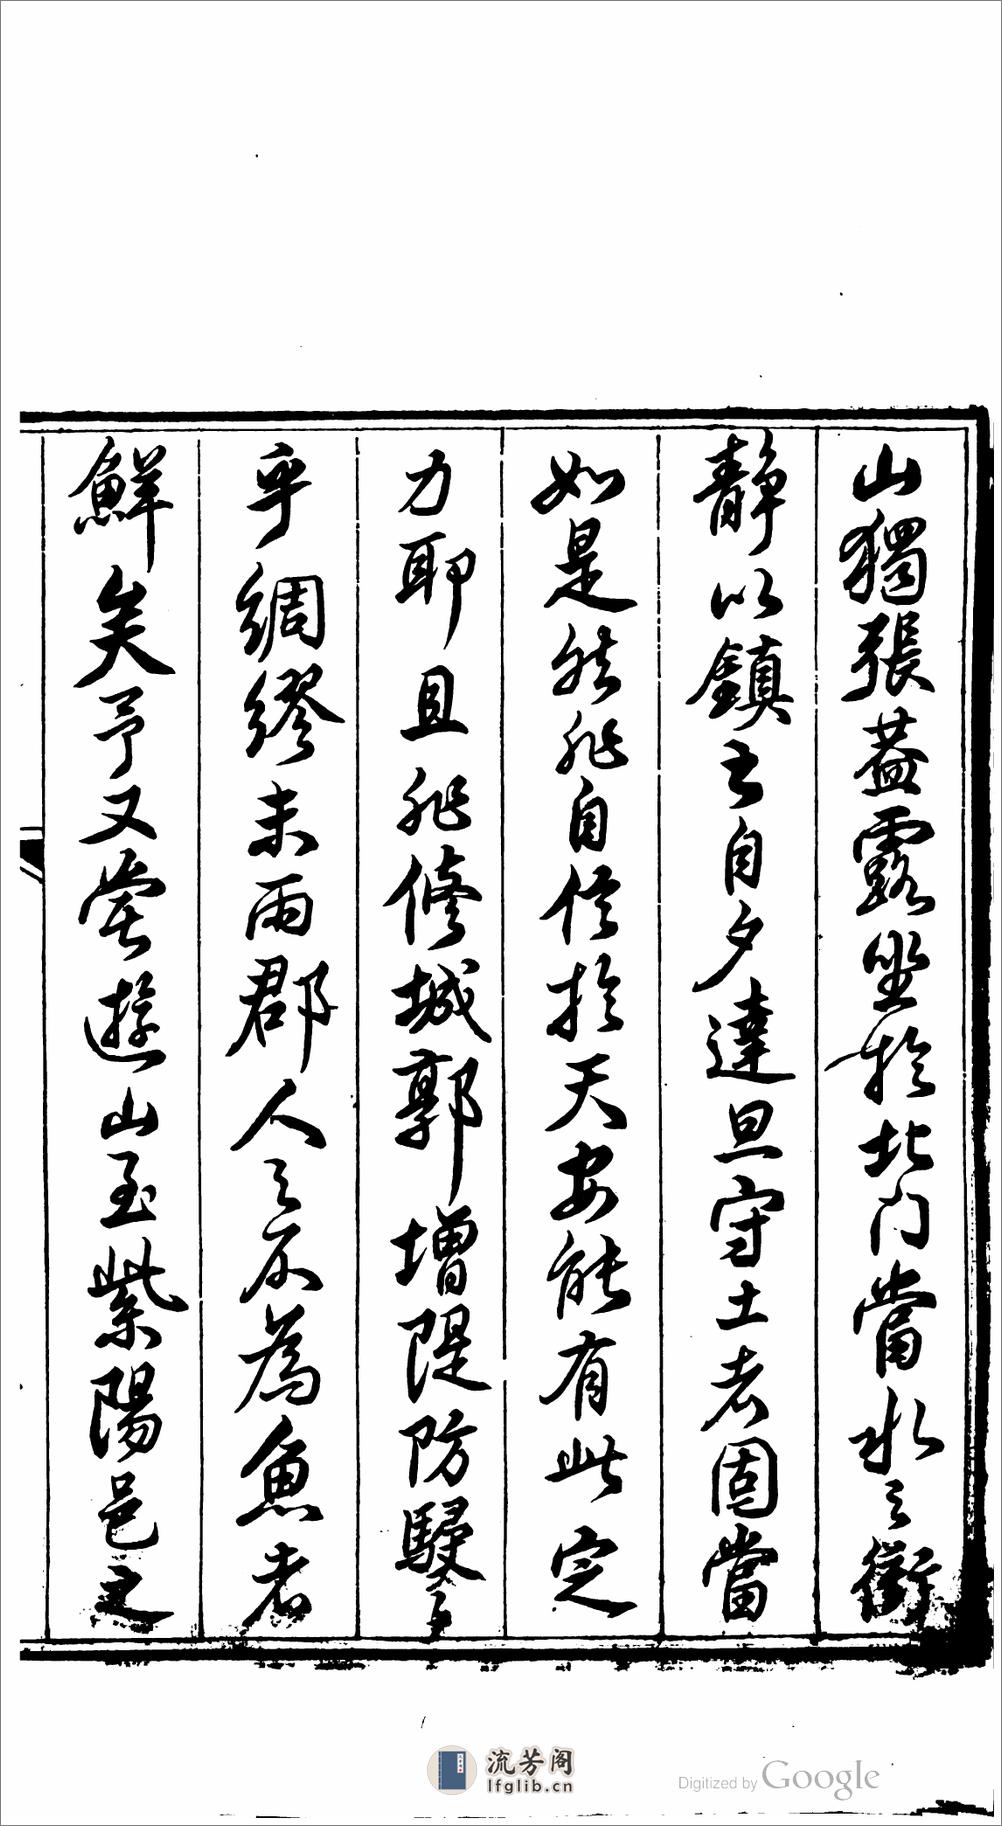 山獨張蓋露坐於北門當水之衝
靜以鎮之自夕達旦守土者固當
如是然非自信於天安能有此定
力耶且非修城郭增隄防駸駸
乎綢繆未雨郡人之不為魚者
鮮矣予又嘗遊山至紫陽邑之
流芳阁
lfglib.cn
Digitized by Google